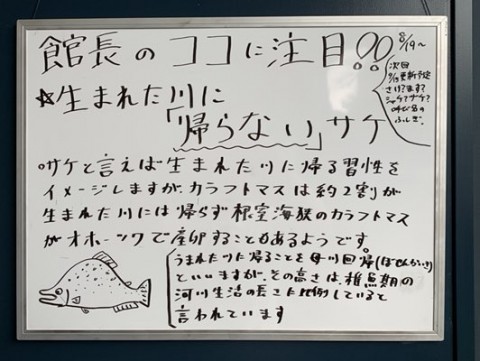 館長のココに注目!!
8/19~
次回
9/19更新予定
さけ?ます?
シャケ?サケ?
呼び名の
ふしぎ。
☆生まれた川に
「帰らない」サケ
○サケと言えば生まれた川に帰る習性を
イメージしますが、カラフトマスは約2割が
生まれた川には帰らず根室海峡のカラフトマス
がオホーツクで産卵することもあるようです。
うまれた川に帰ることを母川回帰(ぼせんかいき)
といいますが、その高さは、稚魚期の
河川生活の長さに比例していると
言われています